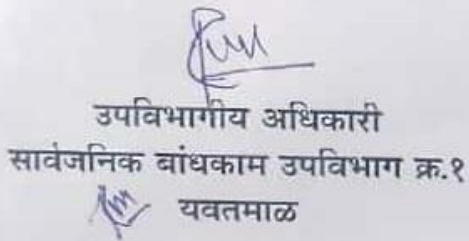 उपविभागीय अधिकारी
सार्वजनिक बांधकाम उपविभाग क्र.१
यवतमाळ